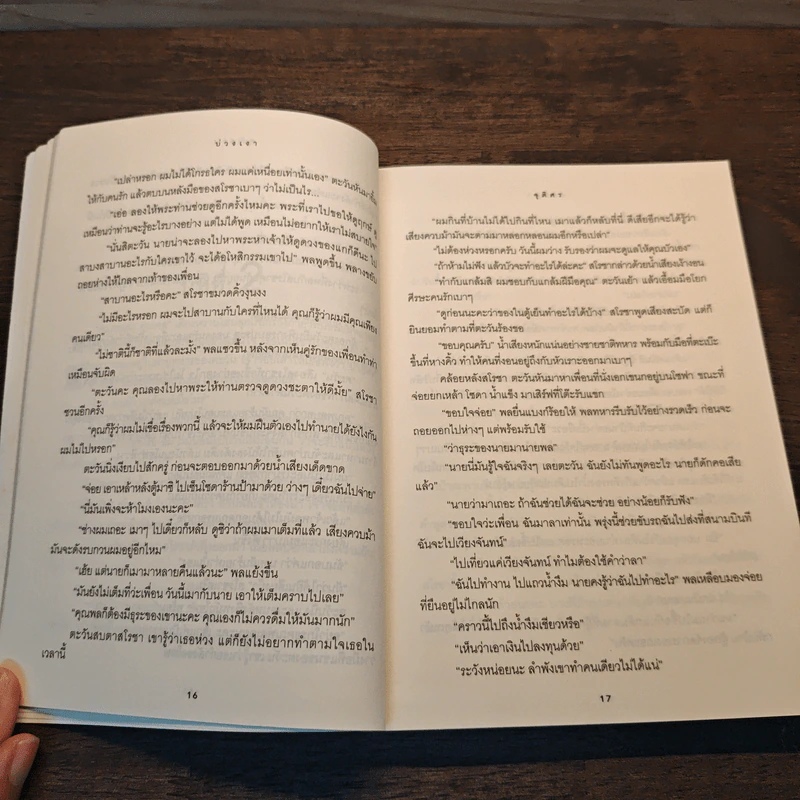 บ่วงเงา
“เปล่าหรอก ผมไม่ได้โกรธใคร ผมแค่เหนื่อยเท่านั้นเอง” ตะวันหันมายิ้ม
ให้กับคนรัก แล้วตบบนหลังมือของสโรชาเบาๆ ว่าไม่เป็นไร...
“เออ ลองให้พระท่านช่วยดูอีกครั้งไหมคะ พระที่เราไปขอให้ดูฤกษ์ ดู
เหมือนว่าท่านจะรู้อะไรบางอย่าง แต่ไม่ได้พูด เหมือนไม่อยากให้เราไม่สบายใจ”
“นั่นสิตะวัน นายน่าจะลองไปหาพระหาเจ้าให้ดูดวงของแกก็ดีนะ ไป
สาบงสาบานอะไรกับใครเขาไว้ จะได้อโหสิกรรมเขาไป” พลพูดขึ้น พลางขยับ
ถอยห่างให้ไกลจากเท้าของเพื่อน
“สาบานอะไรหรือคะ” สโรชาขมวดคิ้วงุนงง
“ไม่มีอะไรหรอก ผมจะไปสาบานกับใครที่ไหนได้ คุณก็รู้ว่าผมมีคุณเพียง
คนเดียว”
“ไม่ชาตินี้ก็ชาติที่แล้วละมั้ง” พลแซวขึ้น หลังจากเห็นคู่รักของเพื่อนทำท่า
เหมือนจับผิด
“ตะวันคะ คุณลองไปหาพระให้ท่านตรวจดูดวงชะตาให้ดีมั้ย” สโรชา
ชวนอีกครั้ง
“คุณก็รู้ว่าผมไม่เชื่อเรื่องพวกนี้ แล้วจะให้ผมฝืนตัวเองไปทำนายได้ยังไงกัน
ผมไม่ไปหรอก”
ตะวันนิ่งเงียบไปสักครู่ ก่อนจะตอบออกมาด้วยน้ำเสียงเด็ดขาด
“จ่อย เอาเหล้าหลังตู้มาซิ ไปเซ็นโซดาร้านป้ามาด้วย ว่างๆ เดี๋ยวฉันไปจ่าย”
“นี่มันเพิ่งจะห้าโมงเองนะคะ”
“ช่างผมเถอะ เมาๆ ไปเดี๋ยวก็หลับ ดูซิว่าถ้าผมเมาเต็มที่แล้ว เสียงควบม้า
มันจะดังรบกวนผมอยู่อีกไหม”
“เฮ้ย แต่นายก็เมามาหลายคืนแล้วนะ” พลแย้งขึ้น
“มันยังไม่เต็มที่ว่ะเพื่อน วันนี้เมากับนาย เอาให้เต็มคราบไปเลย”
“คุณพลก็ต้องมีธุระของเขานะคะ คุณเองก็ไม่ควรดื่มให้มันมากนัก”
ตะวันสบตาสโรชา เขารู้ว่าเธอห่วง แต่ก็ยังไม่อยากทำตามใจเธอใน
เวลานี้
16
จุติคร
“ผมกินที่บ้านไม่ได้ไปกินที่ไหน เมาแล้วก็หลับที่นี่ ดีเสียอีกจะได้รู้ว่า
เสียงควบม้ามันจะตามมาหลอกหลอนผมอีกหรือเปล่า”
“ไม่ต้องห่วงหรอกครับ วันนี้ผมว่าง รับรองว่าผมจะดูแลให้คุณบัวเอง”
“ถ้าห้ามไม่ฟัง แล้วบัวจะทำอะไรได้ล่ะคะ” สโรชากล่าวด้วยน้ำเสียงแง่งอน
“ทำกับแกล้มสิ ผมชอบกับแกล้มฝีมือคุณ” ตะวันเย้า แล้วเอื้อมมือโยก
ศีรษะคนรักเบาๆ
“ดูก่อนนะคะว่าของในตู้เย็นทำอะไรได้บ้าง” สโรชาพูดเสียงสะบัด แต่ก็
ยินยอมทำตามที่ตะวันร้องขอ
“ขอบคุณครับ” น้ำเสียงหนักแน่นอย่างชายชาติทหาร พร้อมกับมือที่ตะเบ๊ะ
ขึ้นที่หางคิ้ว ทำให้คนที่งอนอยู่ถึงกับหัวเราะออกมาเบาๆ
คล้อยหลังสโรชา ตะวันหันมาหาเพื่อนที่นั่งเอกเขนกอยู่บนโซฟา ขณะที่
จ่อยยกเหล้า โซดา น้ำแข็ง มาเสิร์ฟที่โต๊ะรับแขก
“ขอบใจจ่อย” พลยื่นแบงก์ร้อยให้ พลทหารรีบรับไว้อย่างรวดเร็ว ก่อนจะ
ถอยออกไปห่างๆ แต่พร้อมรับใช้
“ว่าธุระของนายมานายพล”
“นายนี่มันรู้ใจฉันจริงๆ เลยตะวัน ฉันยังไม่ทันพูดอะไร นายก็ดักคอเสีย
แล้ว”
“นายว่ามาเถอะ ถ้าฉันช่วยได้ฉันจะช่วย อย่างน้อยก็รับฟัง”
“ขอบใจว่ะเพื่อน ฉันมาลาเท่านั้น พรุ่งนี้ช่วยขับรถฉันไปส่งที่สนามบินที
ฉันจะไปเวียงจันทน์”
“ไปเที่ยวแค่เวียงจันทน์ ทำไมต้องใช้คำว่าลา”
“ฉันไปทำงาน ไปแถวน้ำงึม นายคงรู้ว่าฉันไปทำอะไร” พลเหลือบมองจ่อย
ที่ยืนอยู่ไม่ไกลนัก
“คราวนี้ไปถึงน้ำงึมเชียวหรือ”
“เห็นว่าเอาเงินไปลงทุนด้วย”
“ระวังหน่อยนะ ลำพังเขาทำคนเดียวไม่ได้แน่”
17